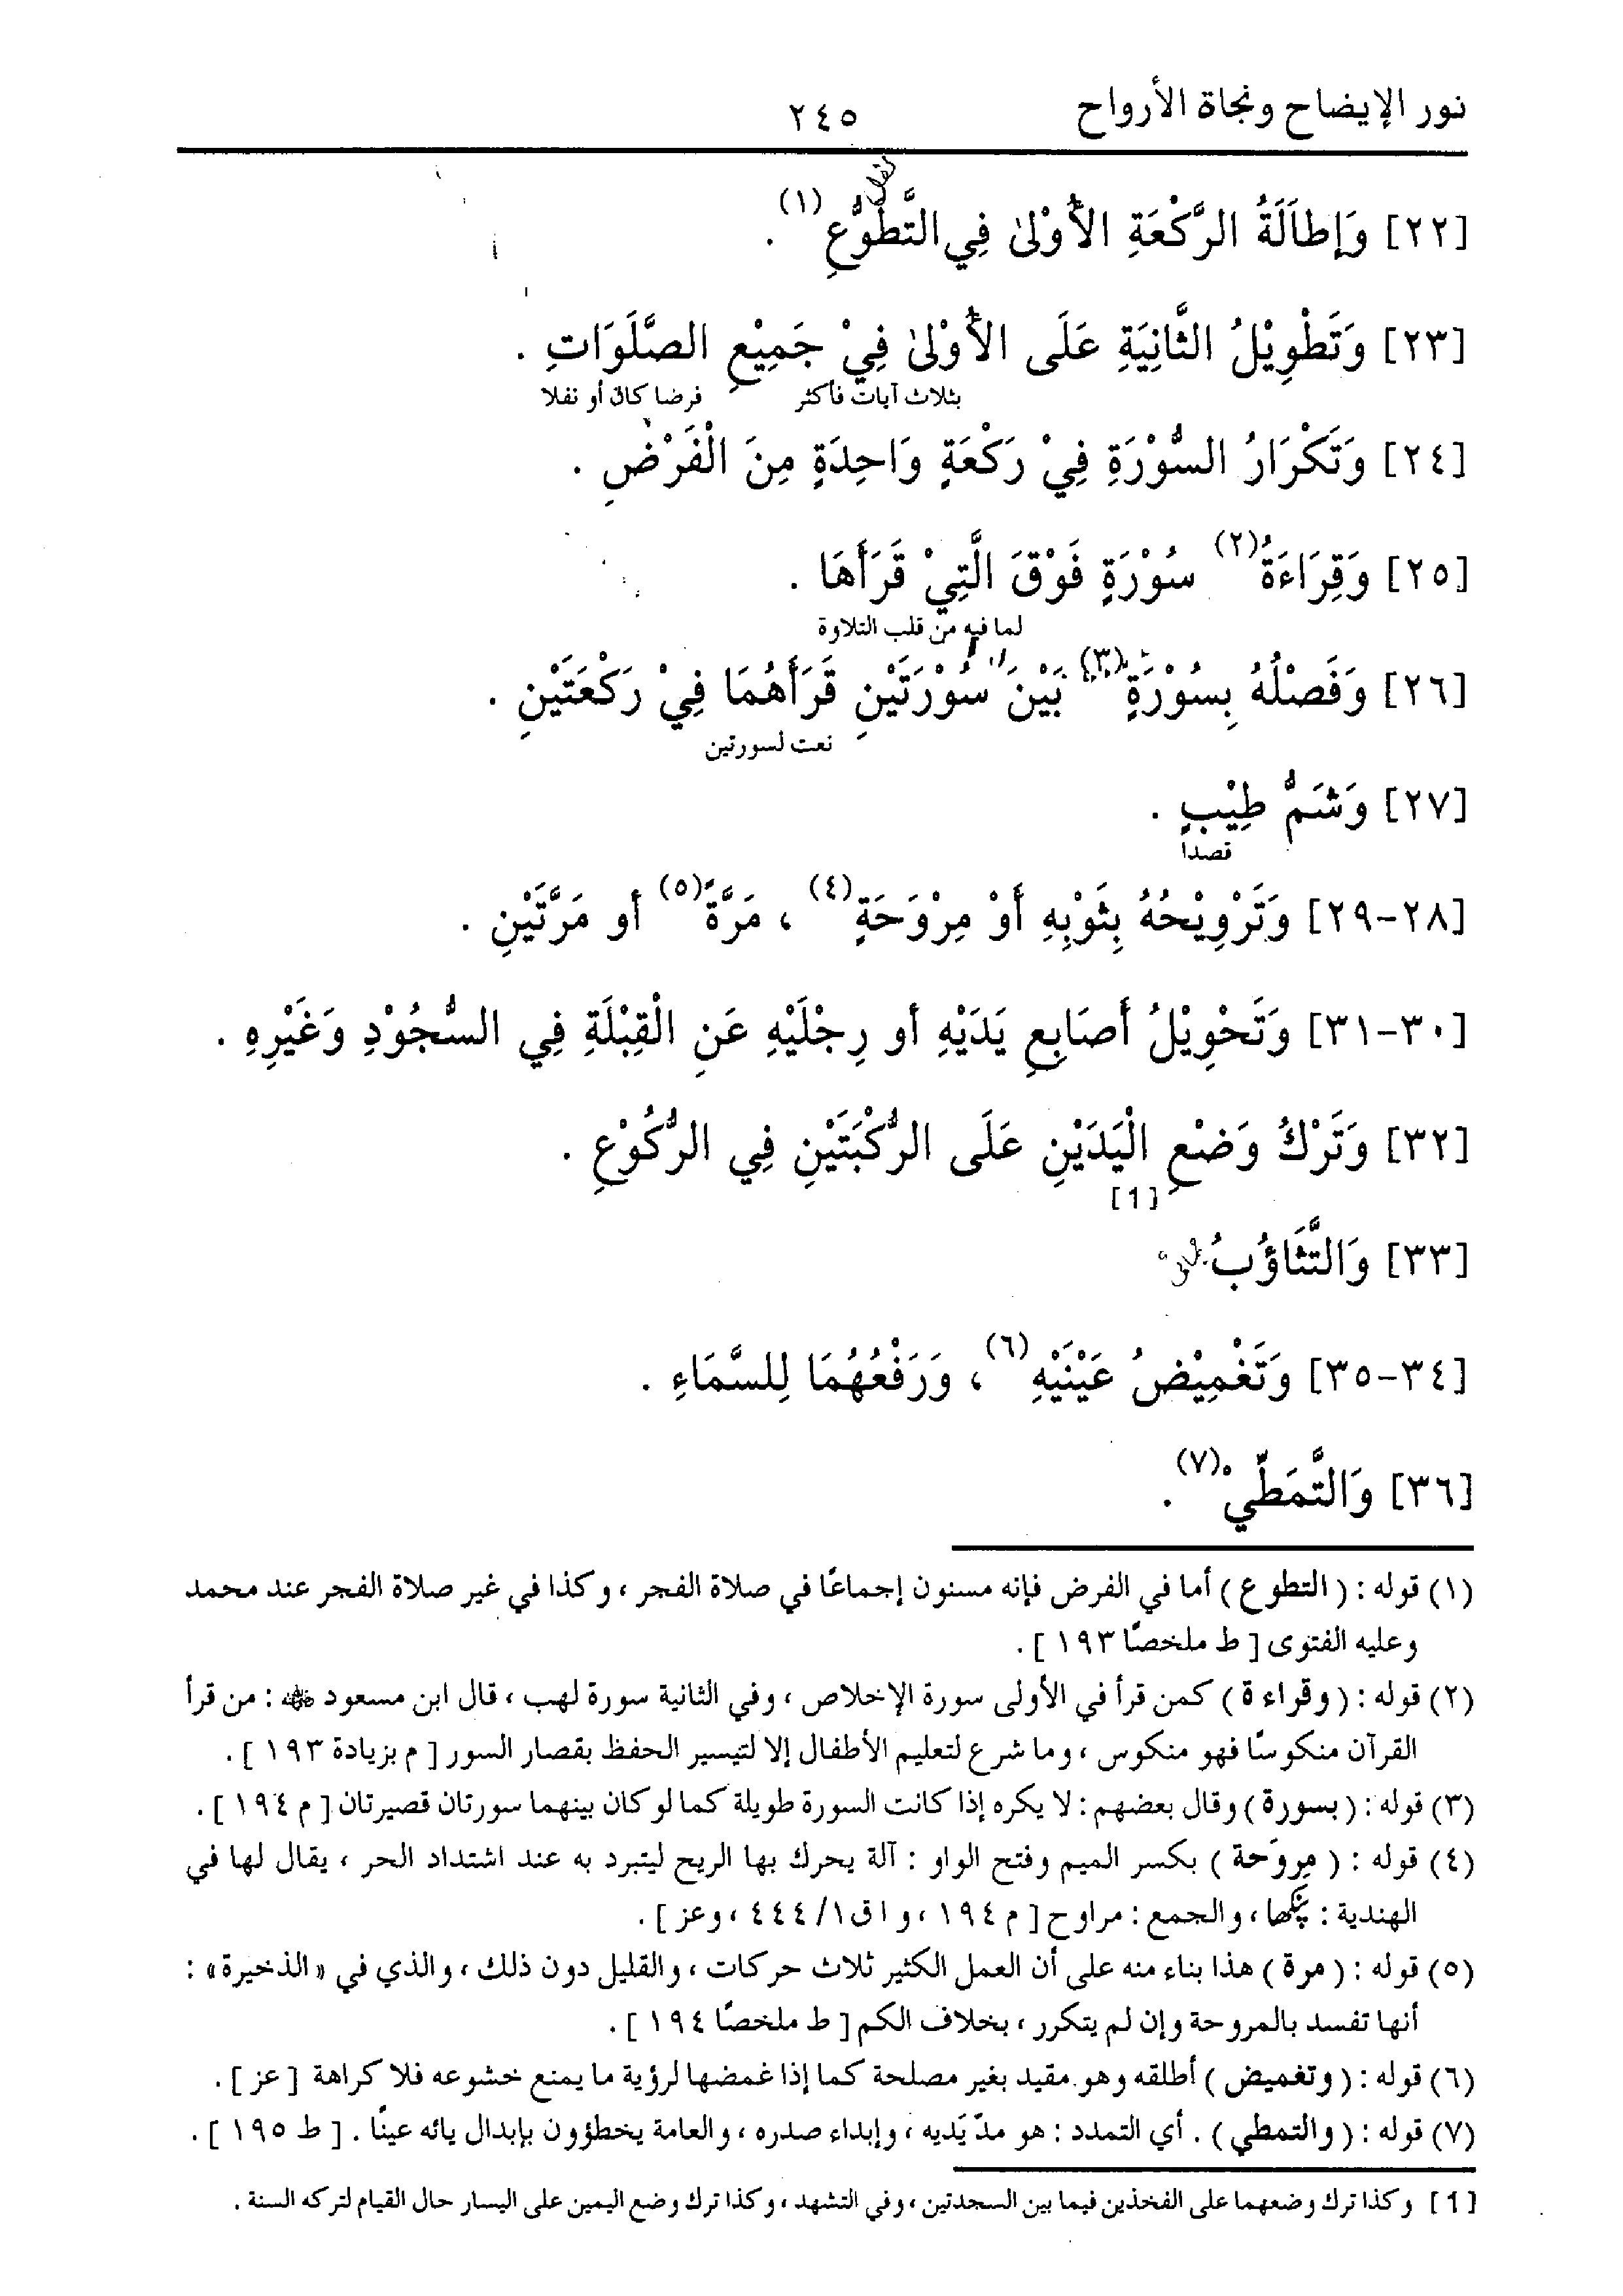 نور الإيضاح ونجاة الأرواح ٢٤٥
[٢٢] وَإِطَالَةُ الرَّكْعَةِ الأُوْلىٰ فِي التَّطَوُّعِ (١) .
[٢٣] وَتَطْوِيْلُ الثَّانِيَةِ عَلَى الأُوْلىٰ فِيْ جَمِيْعِ الصَّلَوَاتِ .
بثلاث آيات فأكثر فرضا كان أو نفلا
[٢٤] وَتَكْرَارُ السُّوْرَةِ فِيْ رَكْعَةٍ وَاحِدَةٍ مِنَ الْفَرْضِ .
[٢٥] وَقِرَاءَةُ (٢) سُوْرَةٍ فَوْقَ الَّتِيْ قَرَأَهَا .
لما فيه من قلب التلاوة
[٢٦] وَفَصْلُهُ بِسُوْرَةٍ (٣) بَيْنَ سُوْرَتَيْنِ قَرَأَهُمَا فِيْ رَكْعَتَيْنِ .
نعت لسورتين
[٢٧] وَشَمُّ طِيْبٍ .
قصداً
[٢٨-٢٩] وَتَرْوِيْحُهُ بِثَوْبِهِ أَوْ مِرْوَحَةٍ (٤) ، مَرَّةً (٥) أو مَرَّتَيْنِ .
[٣٠-٣١] وَتَحْوِيْلُ أَصَابِعِ يَدَيْهِ أو رِجْلَيْهِ عَنِ الْقِبْلَةِ فِي السُّجُوْدِ وَغَيْرِهِ .
[٣٢] وَتَرْكُ وَضْعِ الْيَدَيْنِ عَلَى الرُّكْبَتَيْنِ فِي الرُّكُوْعِ .
[1]
[٣٣] وَالتَّثَاؤُبُ
[٣٤-٣٥] وَتَغْمِيْضُ عَيْنَيْهِ (٦) ، وَرَفْعُهُمَا لِلسَّمَاءِ .
[٣٦] وَالتَّمَطِّيْ (٧) .
(١) قوله : ( التطوع ) أما في الفرض فإنه مسنون إجماعًا في صلاة الفجر ، وكذا في غير صلاة الفجر عند محمد
وعليه الفتوى [ ط ملخصًا ١٩٣ ] .
(٢) قوله : ( وقراءة ) كمن قرأ في الأولى سورة الإخلاص ، وفي الثانية سورة لهب ، قال ابن مسعود ﷺ : من قرأ
القرآن منكوسًا فهو منكوس ، وما شرع لتعليم الأطفال إلا لتيسير الحفظ بقصار السور [ م بزيادة ١٩٣ ] .
(٣) قوله : ( بسورة ) وقال بعضهم : لا يكره إذا كانت السورة طويلة كما لو كان بينهما سورتان قصيرتان [ م ١٩٤ ] .
(٤) قوله : ( مِروَحة ) بكسر الميم وفتح الواو : آلة يحرك بها الريح ليتبرد به عند اشتداد الحر ، يقال لها في
الهندية : پنکھا ، والجمع : مراوح [ م ١٩٤ ، و ا ق ١/ ٤٤٤ ، وعز ] .
(٥) قوله : ( مرة ) هذا بناء منه على أن العمل الكثير ثلاث حركات ، والقليل دون ذلك ، والذي في « الذخيرة » :
أنها تفسد بالمروحة وإن لم يتكرر ، بخلاف الكم [ ط ملخصًا ١٩٤ ] .
(٦) قوله : ( وتغميض ) أطلقه وهو مقيد بغير مصلحة كما إذا غمضها لرؤية ما يمنع خشوعه فلا كراهة [ عز ] .
(٧) قوله : ( والتمطي ) . أي التمدد : هو مدّ يَديه ، وإبداء صدره ، والعامة يخطؤون بإبدال يائه عينًا . [ ط ١٩٥ ] .
[1] وكذا ترك وضعهما على الفخذين فيما بين السجدتين ، وفي التشهد ، وكذا ترك وضع اليمين على اليسار حال القيام لتركه السنة .